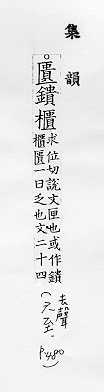 集韻
。匱鑎櫃
求位切說文匣也或作鎖
櫃匱一日之也文二十四
(去聲
六至.
P480)